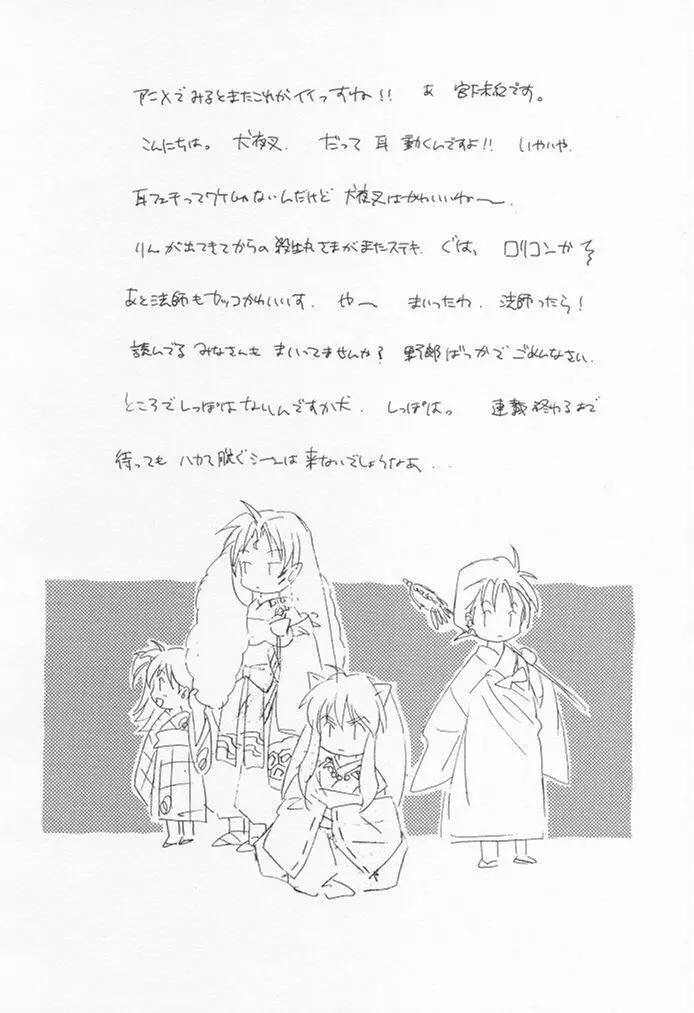 アニメでみるとまたこれがイイっすね!! あ 宮下未紀です。
こんにちは。 犬夜叉. だって 耳 動くんですよ!! いやいや.
耳フェチってワケじゃないんだけど 犬夜叉はかわいいね〜.
りんが出てきてからの 殺生丸さまがまたステキ. ぐは、 ロリコンか で
あと法師もカッコかわいいす. や〜 まいったわ. 法師ったら!
読んでる みなさんも まいってませんか? 野郎ばっかでごめんなさい.
ところでしっぽはないんですか犬. しっぽは。 連載終わるまで
待っても ハカマ脱ぐシーンは来ないでしょうなあ...